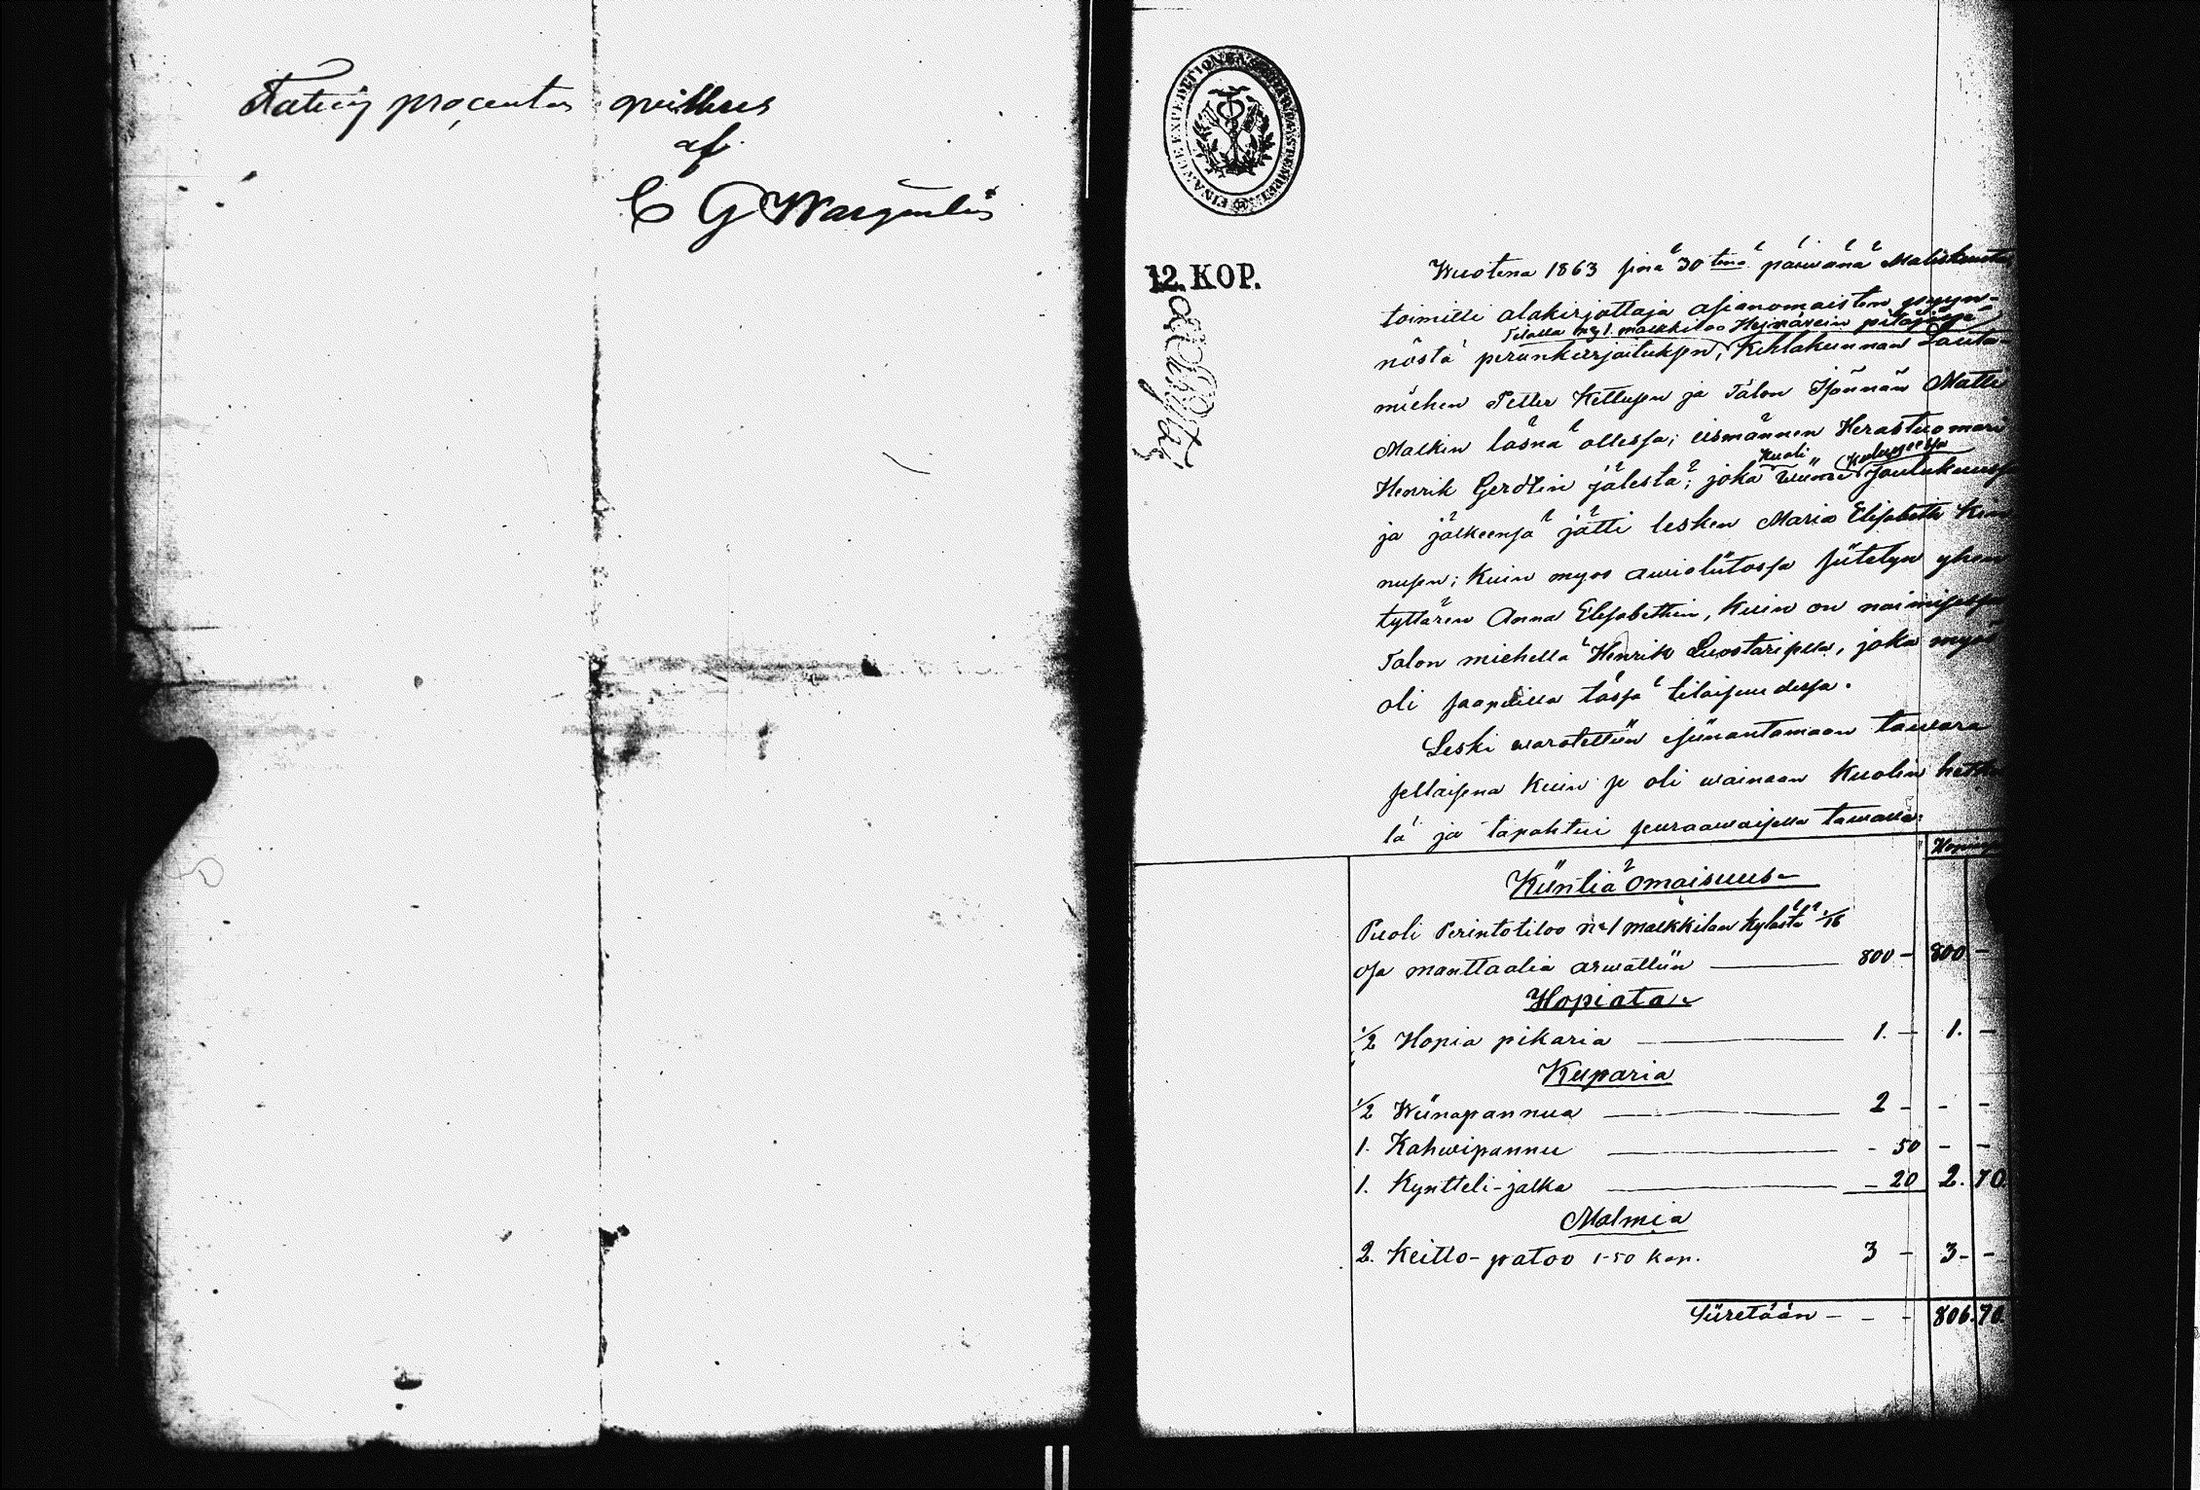 Fattig procenten qvitteras
af
C G Wargentin
12. KOP.
Wuotena 1863 sinä 30 tenä päiwänä Maliskuuta
toimitti alakirjottaja asianomaisten pyyn-
Tilalla No 1 malkkilaa Heinäwein pitäjäsä
nöstä perunkirjoituksen, Kihlakunnan Lauta-
miehen Petter Kettusen ja Talon Isännän Matti
Malkin läsnä ollessa; eismännen Herastuomari
Kuoli
Henrik Gerdtin jälestä; joka wiime Joulukuussa
ja jälkeensä jätti lesken Maria Elisabeth
nusen; Kuin myös awioliitossa siitetyn yhen
tyttären Anna Elisabethin, Kuin on naimisessa
Talon miehellä Henrik Luostarisella, joka myös
oli saapuilla tässä tilaisuudessa.
Leski warotettiin esiinantamaan tawara
sellaisena Kuin se oli wainaan Kuolin
tä ja tapahtui seuraawaisella tawalla:
Kiintiä omaisuus
Puoli Perintotiloo No 1 malkkilan kylästä 1/16
osa manttaalia arwattiin 800 - 800 -
Hopiata
1/2 Hopia pikaria 1. - 1. -
Kuparia
1/2 Wiinapannua 2 - - -
1. Kahwipannu - 50 - -
1. Kyntteli-jalka - 20 2. 70
Malmia
2. Keitto-patoo 1-50 kop. 3 - 3 - -
Siiretään - - - 806. 70